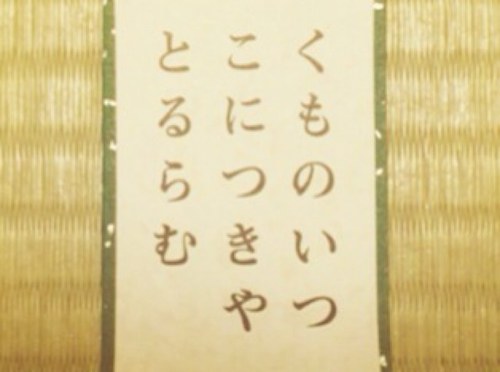 くものいつ
こにつきや
とるらむ